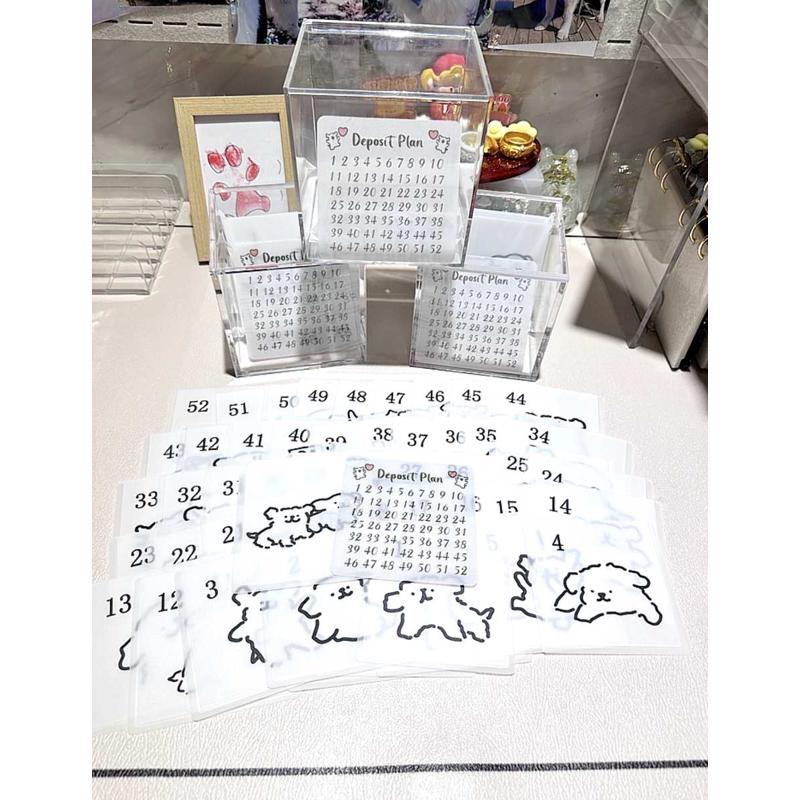 Deposit Plan
1 2 3 4 5 6 7 8 9 10
11 12 13 14 15 16 17
18 19 20 21 22 23 24
25 26 27 28 29 30 31
32 33 34 35 36 37 38
39 40 41 42 43 44 45
46 47 48 49 50 51 52
Deposit Plan
1 2 3 4 5 6 7 8 9 10
11 12 13 14 15 16 17
18 19 20 21 22 23 24
25 26 27 28 29 30 31
32 33 34 35 36 37 38
39 40 41 42 43 44 45
46 47 48 49 50 51 52
Deposit Plan
1 2 3 4 5 6 7 8 9 10
11 12 13 14 15 16 17
18 19 20 21 22 23 24
25 26 27 28 29 30 31
32 33 34 35 36 37 38
39 40 41 42 43 44 45
46 47 48 49 50 51 52
52 51 50 49 48 47 46 45 44
43 42 41 40 39 38 37 36 35 34
33 32 31 27 26 25 24
Deposit Plan
1 2 3 4 5 6 7 8 9 10
11 12 13 14 15 16 17
18 19 20 21 22 23 24
25 26 27 28 29 30 31
32 33 34 35 36 37 38
39 40 41 42 43 44 45
46 47 48 49 50 51 52
15 14
23 22 4
13 12 3